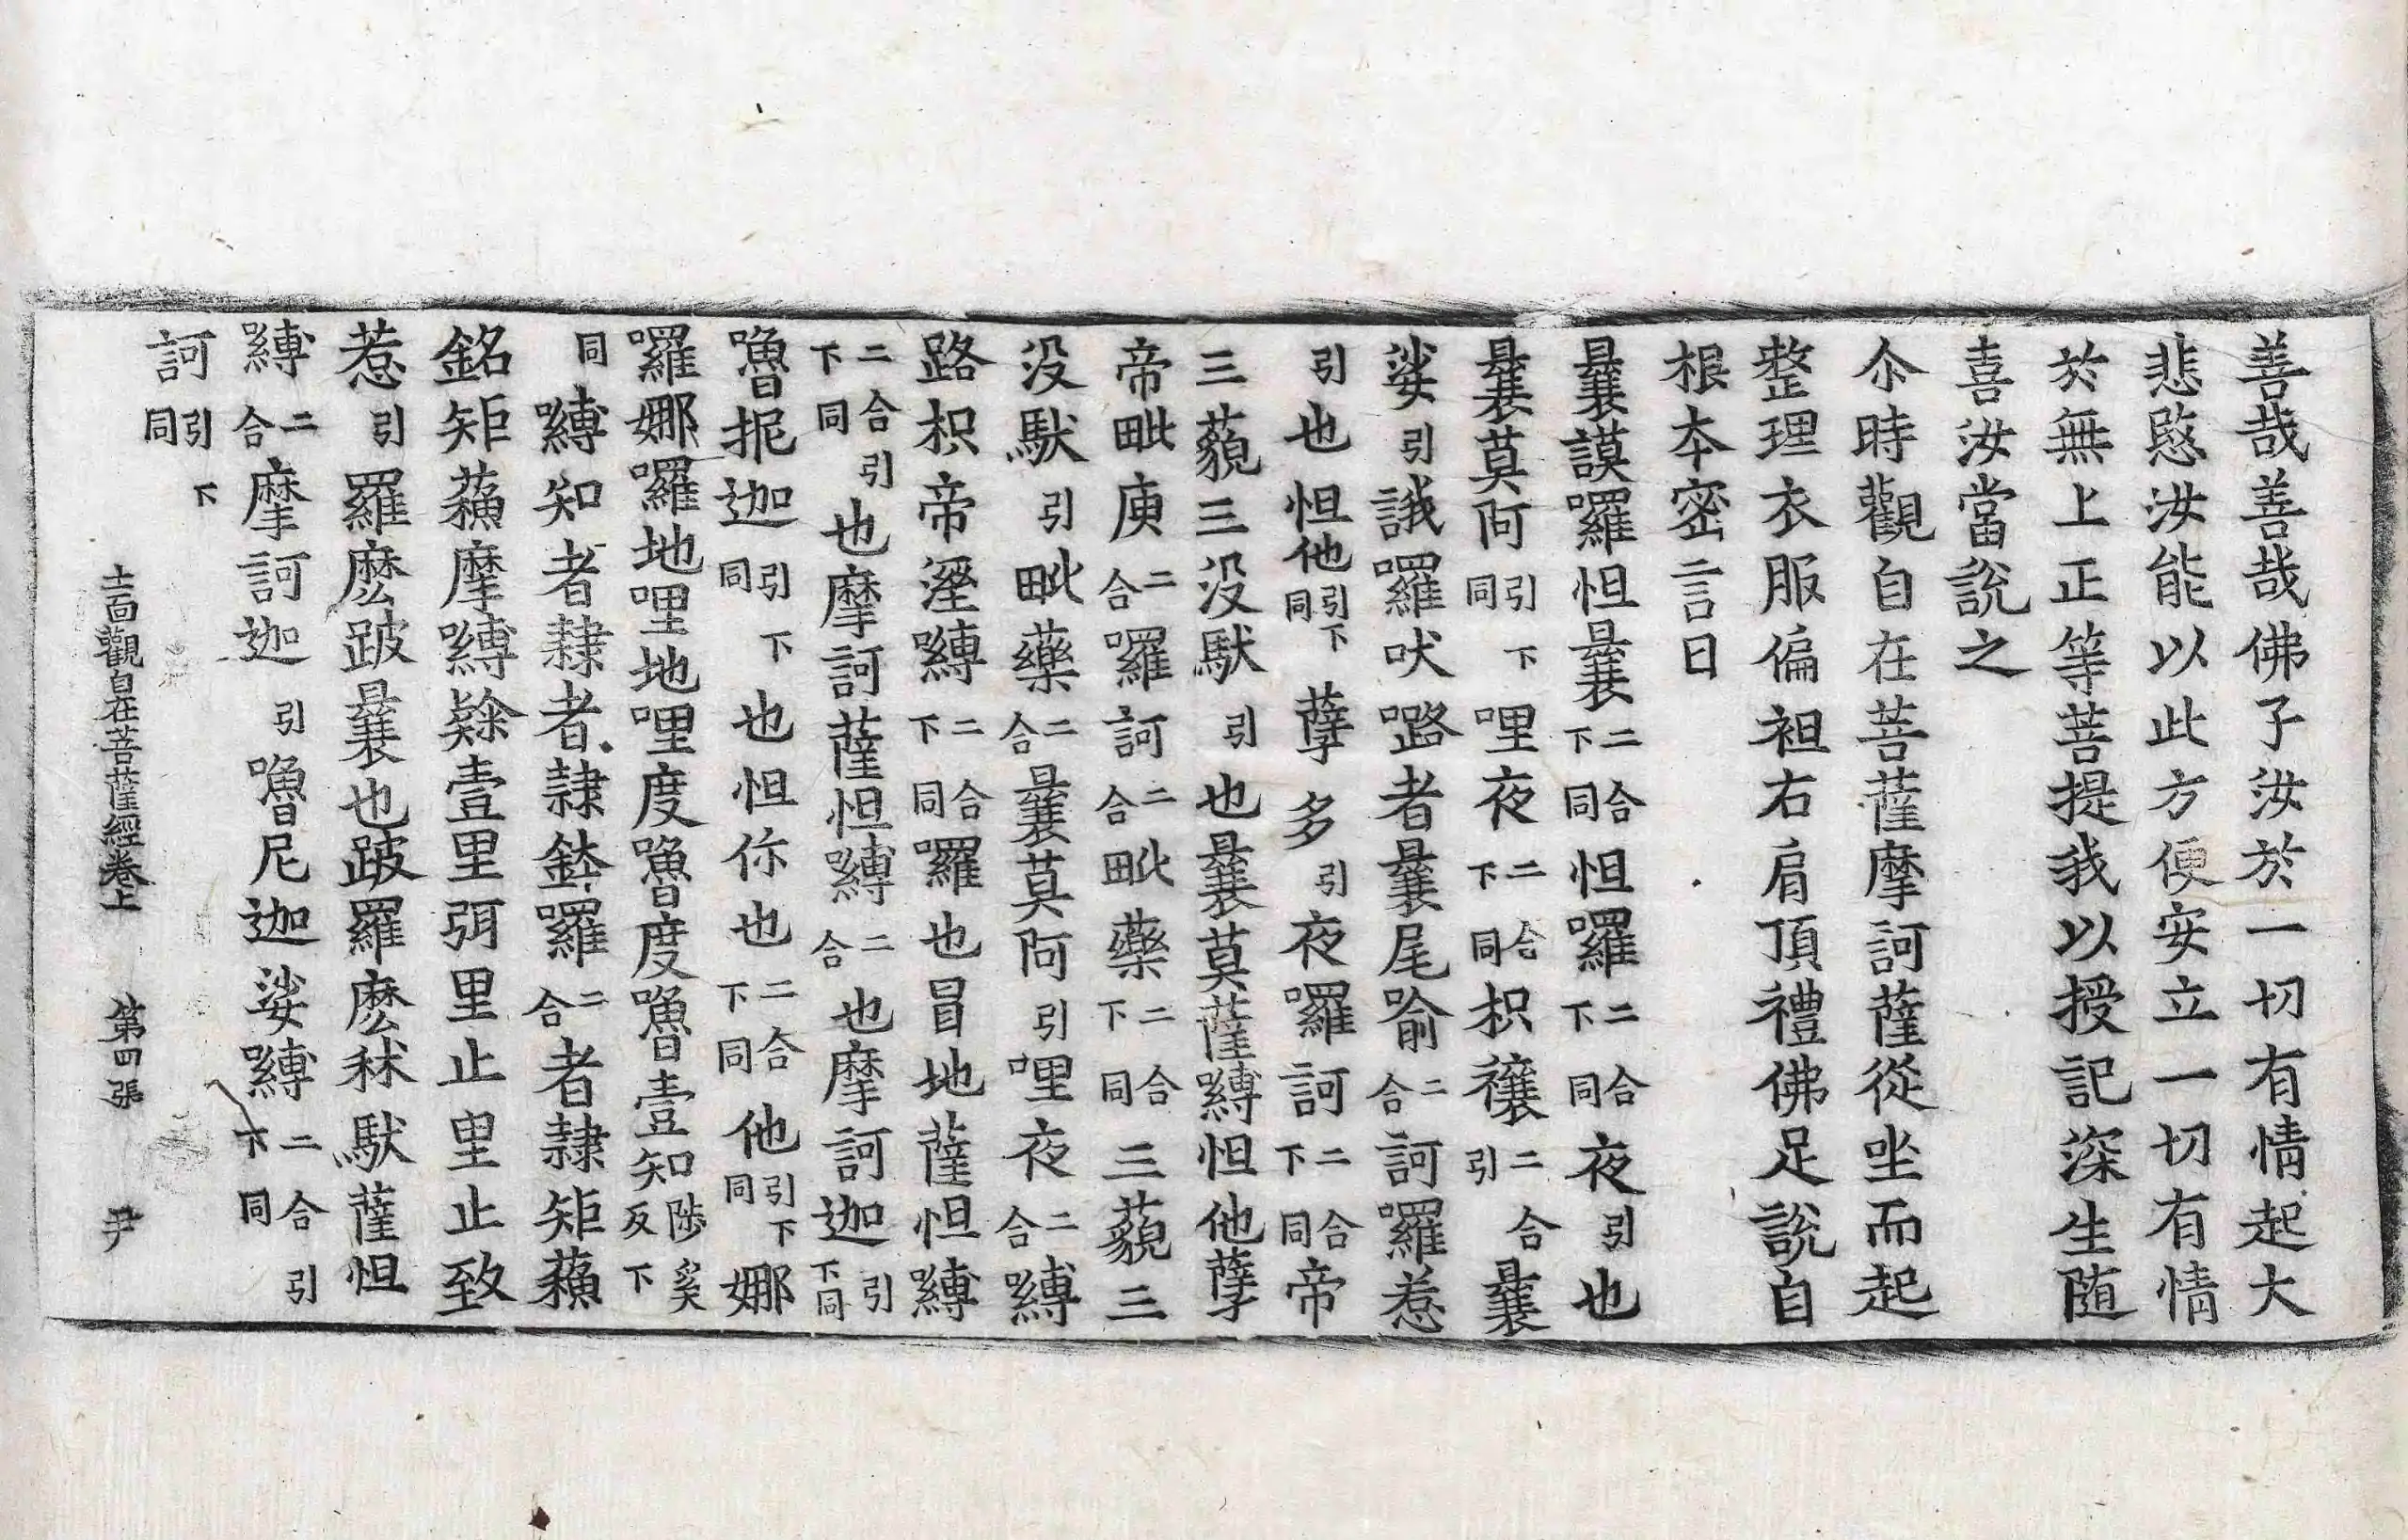 善哉善哉佛子汝於一切有情起大
悲愍汝能以此方便安立一切有情
於無上正等菩提我以授記深生随
喜汝當說之
尒時觀自在菩薩摩訶薩從坐而起
整理衣服偏袒右肩頂禮佛足說自
根本密言曰
曩謨囉怛曩二合下同怛囉二合下同夜引也
曩莫阿引下同哩夜二合下同枳穰二合引曩
娑引誐囉吠嚧者曩尾喻二合訶囉惹
引也怛他引下同孽多引夜囉訶二合下同帝
三藐三没馱引也曩莫薩嚩怛他孽
帝毗庾二合囉訶二合毗藥二合下同三藐三
没馱引毗藥二合曩莫阿引哩夜二合嚩
路枳帝溼嚩二合下同囉也冒地薩怛嚩
二合下同引也摩訶薩怛嚩二合也摩訶迦引下同
嚕抳迦引下同也怛你也二合下同他引下同娜
囉娜囉地哩地哩度嚕度嚕壹知陟奚反下
同嚩知者隸者隸鉢囉二合者隸矩蘓
銘矩蘓摩嚩㘑壹里弭里止里止致
惹引羅麽跛曩也跛羅麽秫馱薩怛
嚩二合摩訶迦引嚕尼迦娑嚩二合下同引
訶引下同
十一面觀自在菩薩經卷上 第四張 尹